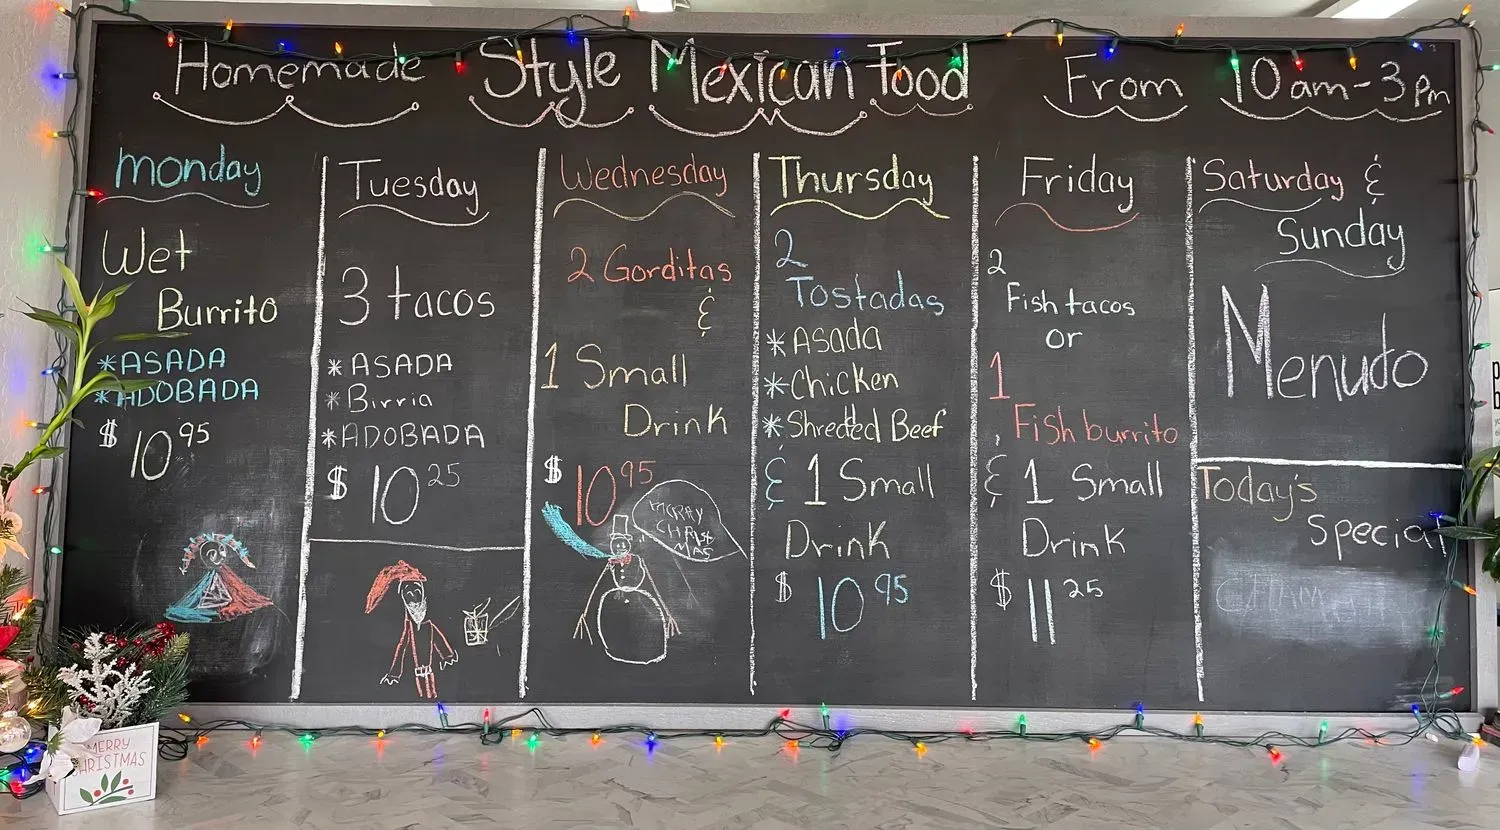 Homemade Style Mexican Food From 10am-3pm
monday
Wet
Burrito
*ASADA
*ADOBADA
$10 95
Tuesday
3 tacos
*ASADA
*Birria
*ADOBADA
$10 25
Wednesday
2 Gorditas
&
1 Small
Drink
$10 95
MERRY
CHRIST
MAS
Thursday
2
Tostadas
*Asada
*Chicken
*Shredded Beef
& 1 Small
Drink
$10 95
Friday
2
Fish tacos
or
1
Fish burrito
& 1 Small
Drink
$11 25
Saturday &
Sunday
Menudo
Today's
Special
MERRY
CHRISTMAS